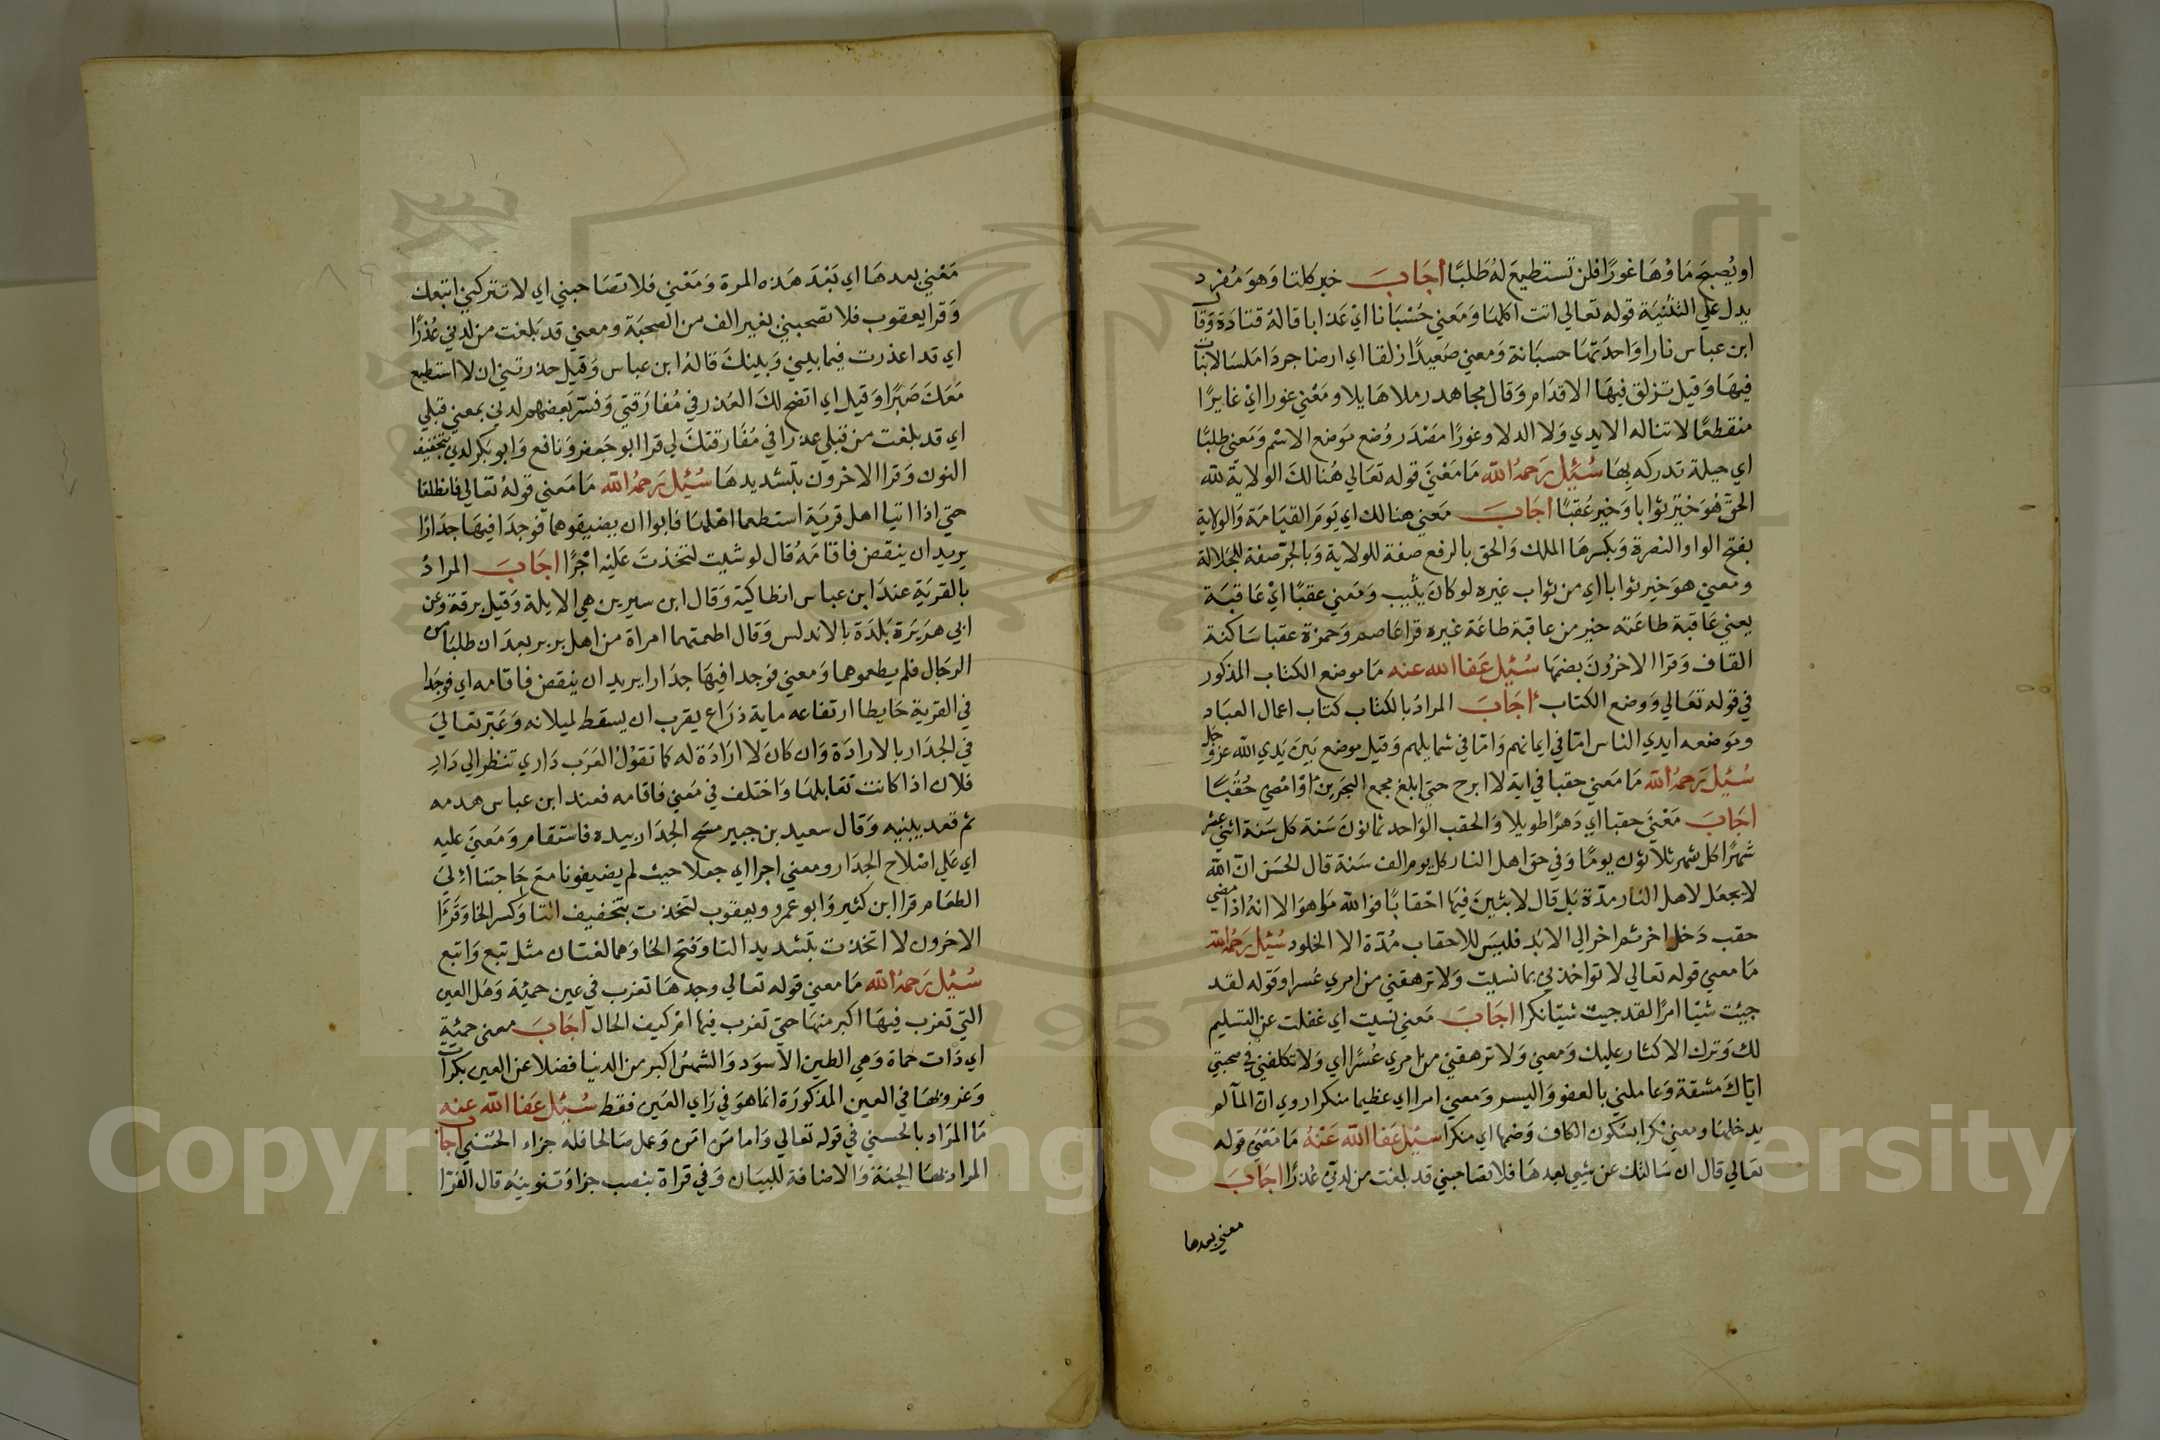 او يُصبح مَاؤهَا غورًا فلن تستطيعَ لهُ طَلبًا اجَابَ خبر كلتا وَهوَ مُفرد
يدل علي التثنيَة قوله تعالي اتت اكلها وَمَعني حُسْبَانا اي عَذابا قالهُ قتادَة وَقال
ابن عباس نارا وَاحدَتهَا حسبانة وَمعني صَعيدًا زلقا اي ارضا جردَا ملسَا لا نبات
فيهَا وَقيل تزلق فيهَا الاقدَام وَقال مجاهد رملا هَايلا ومَعْني غورا اي غايرًا
منقطعًا لا تناله الايدي وَلا الدلا وغورًا مَصْدَر وُضع مَوضع الاسْم وَمَعني طلبًا
اي حيلة تدركه بهَا سُئِل رَحمهُ الله مَا مَعْنيَ قوله تعَالي هُنالكَ الولايَة لله
الحقّ هُوَ خَيْرٌ ثوابا وَخير عُقبًا اجَابَ مَعني هنالك اي يَومَ القيَامَة وَالولاية
بفتح الواو النصرة وَبكسرهَا الملك وَالحق بالرفع صفة للولاية وَبالجرّ صفة للجلالة
ومعني هوَ خير ثوابا اي من ثواب غيره لو كانَ يثيب وَمَعني عقبًا اي عَاقبَة
يعني عَاقبة طاعَته خير من عاقبة طاعَة غيره قرا عَاصم وَحمزة عقبا سَاكنة
القاف وَقرا الاخرُونَ بضمهَا سُئِل عَفا الله عنه مَا موضع الكتاب المذكور
في قوله تعَالي وَوضع الكتاب اجَابَ المرادُ بالكتاب كتاب اعمال العبَاد
ومَوضعه ايدي الناس امّا في ايمانهم وَامّا في شمايلهم وَقيل موضع بَينَ يَدي الله عزوَجَل
سُئِل رَحمهُ الله مَا مَعني حقبا في اية لا ابرح حتي ابلغ مجمع البحرين اوْ امْضي حُقُبًا
اجَابَ مَعْنيَ حقبا اي دَهرًا طويلا وَالحقب الوَاحد ثمانونَ سَنة كل سَنة اثني عشر
شهرًا كل شهر ثلاثون يومًا وَفي حق اهل النار كل يوم الف سَنة قال الحَسَن انّ الله
لا يجعَل لاهل النار مدّة بَل قال لابثينَ فيهَا احْقابًا فوَالله مَا هوَ الا انهُ اذا مضي
حقب دَخل اخر ثم اخر الي الابَد فليسَ للاحقاب مُدّة الا الخلود سُئِل رَحمهُ الله
مَا معني قوله تعالي لا تواخذني بما نسيت وَلا ترهقني من امري عُسرا وَقوله لقد
جيئت شيئا امرًا لقد جيت شيئا نكرا اجَابَ مَعني نسيت اي غفلت عن التسليم
لك وَترك الانكار عليك وَمعني وَلا ترهقني من امري عُسْرًا اي وَلا تكلفني في صحبتي
ايّاكَ مشقة وَعاملني بالعفو وَاليسر وَمعني امرا اي عظيما منكرا روي انّ المآ لم
يدخلهَا ومعني نكرا بسُكون الكاف وَضمها اي منكرا سُئِل عَفا الله عَنْهُ مَا مَعْنيَ قوله
تعالي قال ان سَالتك عن شيئ بعدهَا فلا تصَاحبني قد بلغت من لدني عُذرًا اجَابَ
معني بعدها
مَعْني بعدهَا اي بَعْدَ هَذه المرة وَمَعْني فلا تصَاحبني اي لا تتركني اتبعك
وَقرا يعقوب فلا تصحبني بغير الف من الصحبَة ومعني قد بَلغت من لدني عُذرًا
اي قد اعذرت فيما بيني وَبينكَ قالهُ ابن عباس وَقيل حذرتني ان لا استطيع
مَعَكَ صَبْرًا وَقيل اي اتضح لكَ العُذر في مُفارَقتي وَفسّر بَعضهم لدني بمعني قبلي
اي قد بلغت من قبلي عذرا في مُفَارقتكَ لي قرا ابو جَعفر وَنافع وَابو بَكر لدني بتخفيف
النون وَقرا الاخرُون بتشديدهَا سُئِل رَحمهُ الله مَا مَعني قولهُ تعَالي فانطلقا
حتي اذا اتيا اهل قريَة استطعما اهْلهَا فابوا ان يضيفوهما فوَجدَا فيهَا جدَارًا
يريد ان ينقض فاقامَهُ قال لو شيت لتخذتَ عَليْه اجْرًا اجَابَ المرادُ
بالقريَة عندَ ابن عباس انطاكية وَقال ابن سيرين هي الايلة وَقيل برقة وَعن
ابي هرَيرَة بَلدَة بالاندلس وَقال اطعمتهما امراة من اهل بربر بعدَ ان طلبَا من
الرجَال فلم يطعموهما وَمعني فوَجدا فيهَا جدَارا يريد ان ينقض فاقامه اي فوجَدَا
في القرية حَايطا ارتفاعه ماية ذرَاع يقرب ان يسقط لميلانه وَعَبّر تعالي
في الجدَار بالارادَة وَان كانَ لا ارَادَة له كما تقوْلُ العَرَب دَاري تنظر الي دَار
فلان اذا كانت تقابلهَا وَاختلف في مَعني فاقامه فعند ابن عباس هدمه
ثم قعد يبنيه وَقال سعيد بن جبير مسَح الجدَار بيده فاستقام وَمَعنيَ عليه
اي عَلي اصْلاح الجدَار ومعني اجرا اي جعلا حيث لم يضيفونا معَ حَاجتنا اليَ
الطعَام قرا ابن كثير وَابو عمرو ويعقوب لتخذت بتخفيف التا وَكسر الخا وَقرَا
الاخرون لاتخذت بتشديد التا وَفتح الخا وَهما لغتان مثل تبع وَاتبع
سُئِل رَحمهُ الله مَا معني قوله تعالي وجدهَا تغرب في عين حمئة وَهَل العين
التي تغرب فيهَا اكبر منهَا حتي تغرب فيها ام كيف الحال اجَابَ معني حمئة
اي ذَات حماة وَهي الطين الاسوَد وَالشمسُ اكبر من الدنيا فضلا عن العين بكرات
وَغروبهَا في العين المذكورَة انما هوَ في رَاي العَين فقط سُئِل عَفا الله عنه
مَا المرَاد بالحسني في قوله تعالي وَاما مَن امَن وَعمل صَالحا فلهُ جزاء الحسْني اجاب
المراد بهَا الجنة وَالاضافة للبيَان وَفي قراة بنصب جزاءُ وَتنوينهُ قال الفرّا